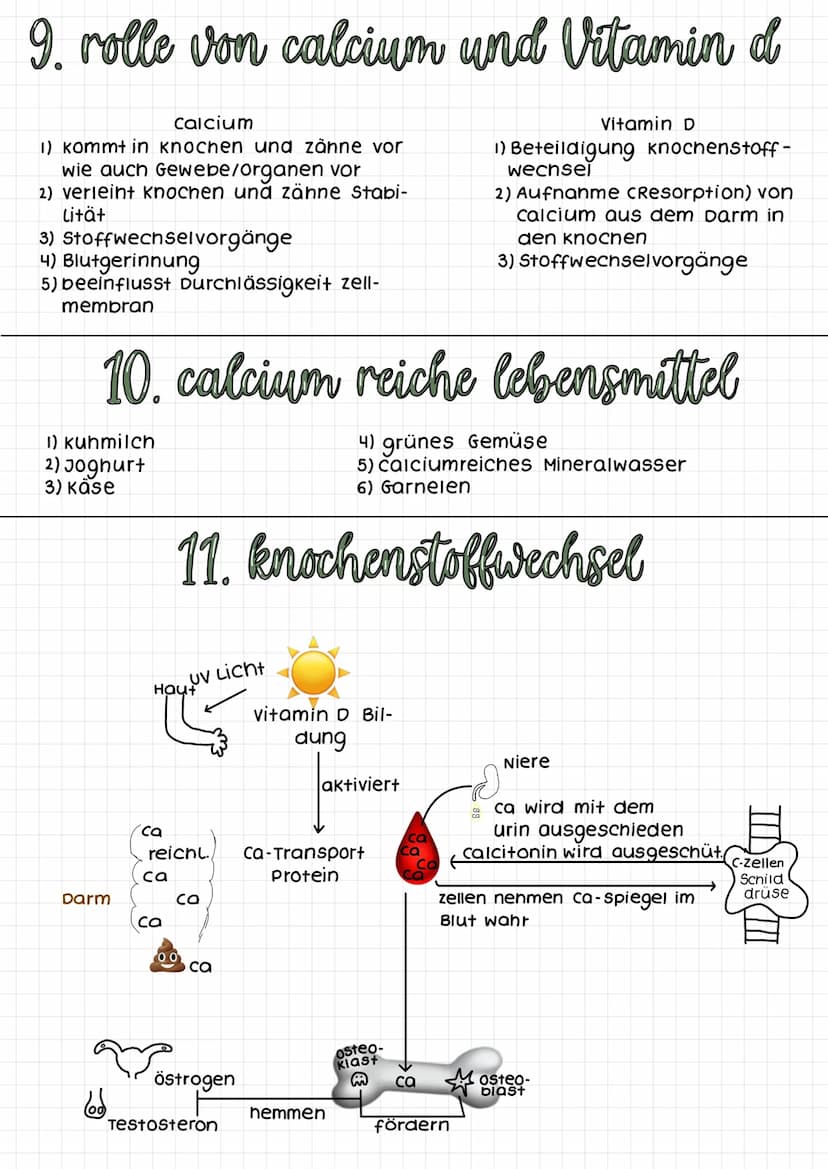 9. rolle von calcium und Vitamin d
Calcium
1) kommt in knochen und zähne vor
wie auch Gewebe/Organen vor
2) verleiht knochen und zähne Stabi-
lität
3) Stoffwechselvorgänge
4) Blutgerinnung
5) beeinflusst Durchlässigkeit zell-
membran
Vitamin D
1) Beteildigung knochenstoff-
wechsel
2) Aufnahme (Resorption) von
calcium aus dem Darm in
den knochen
3) Stoffwechselvorgänge
10. calcium reiche lebensmittel
1) kuhmilch
2) Joghurt
3) käse
4) grünes Gemüse
5) calciumreiches Mineralwasser
6) Garnelen
11. knochenstoffwechsel
Haut
UV Licht
Vitamin D Bil-
dung
aktiviert
Ca-Transport
Protein
Darm
ca
reichl.
ca
ca
ca
ca
Niere
ca wird mit dem
urin ausgeschieden
ca
ca
ca
ca
ca
ca
calcitonin wird ausgeschüt.
zellen nehmen ca-spiegel im
Blut wahr
C-zellen
Schild
drüse
osteo-
klast
ca
osteo-
blast
östrogen
Testosteron
hemmen
fördern